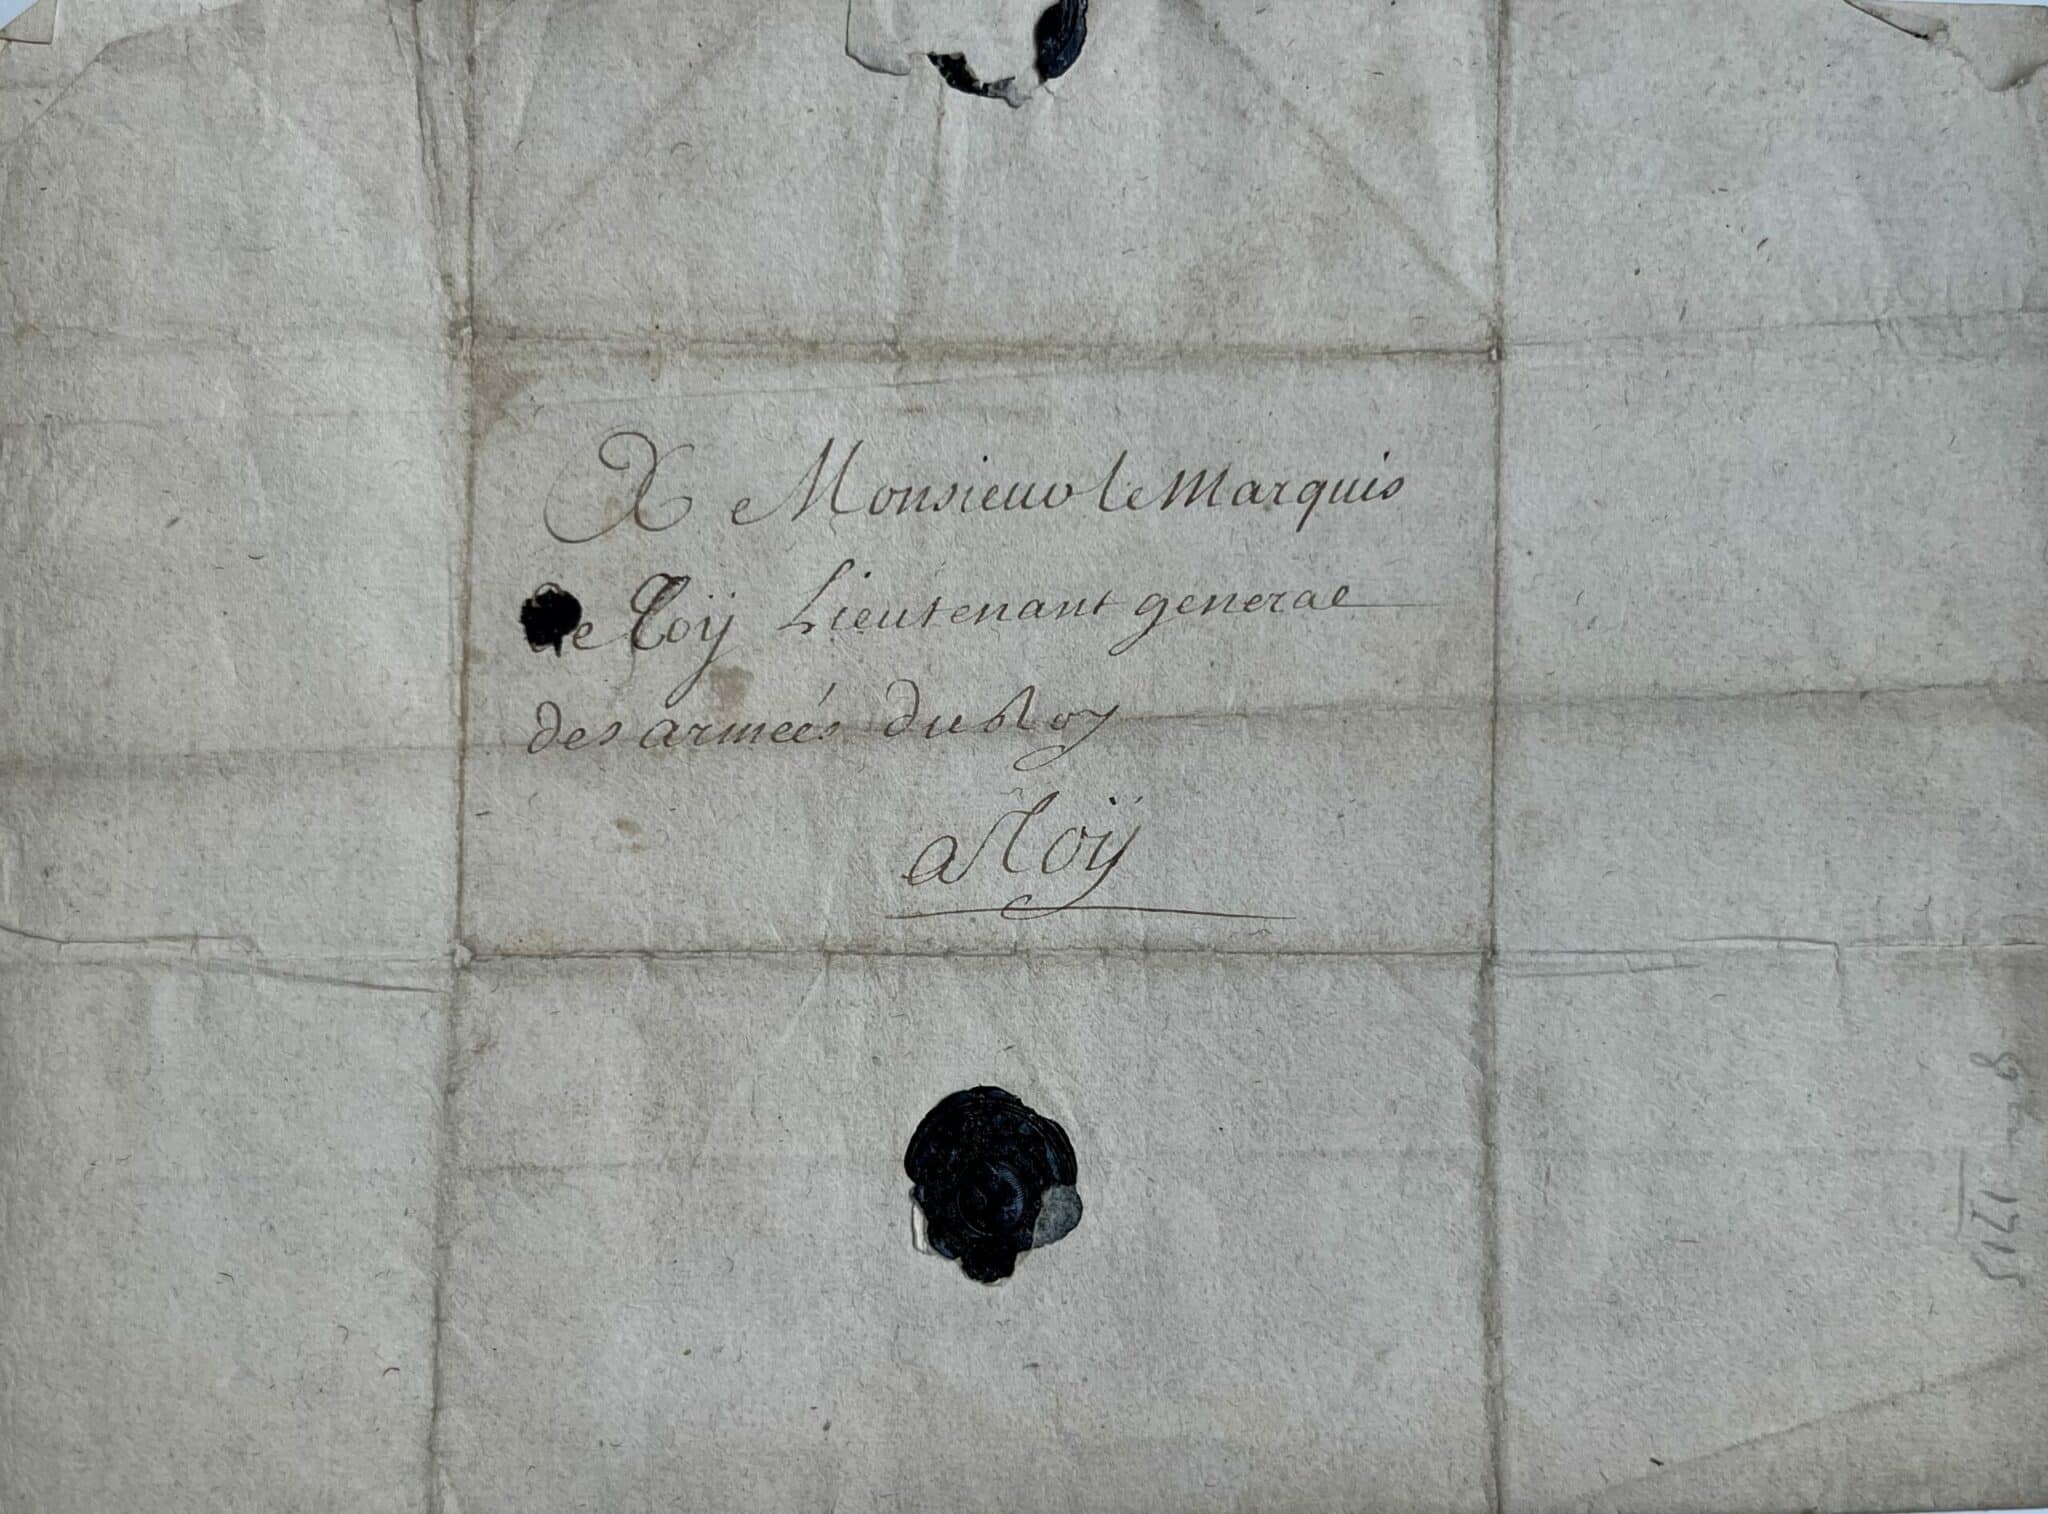 A Monsieur le Marquis
de Toÿ Lieutenant general
des armées du Roy
a Toÿ
1715